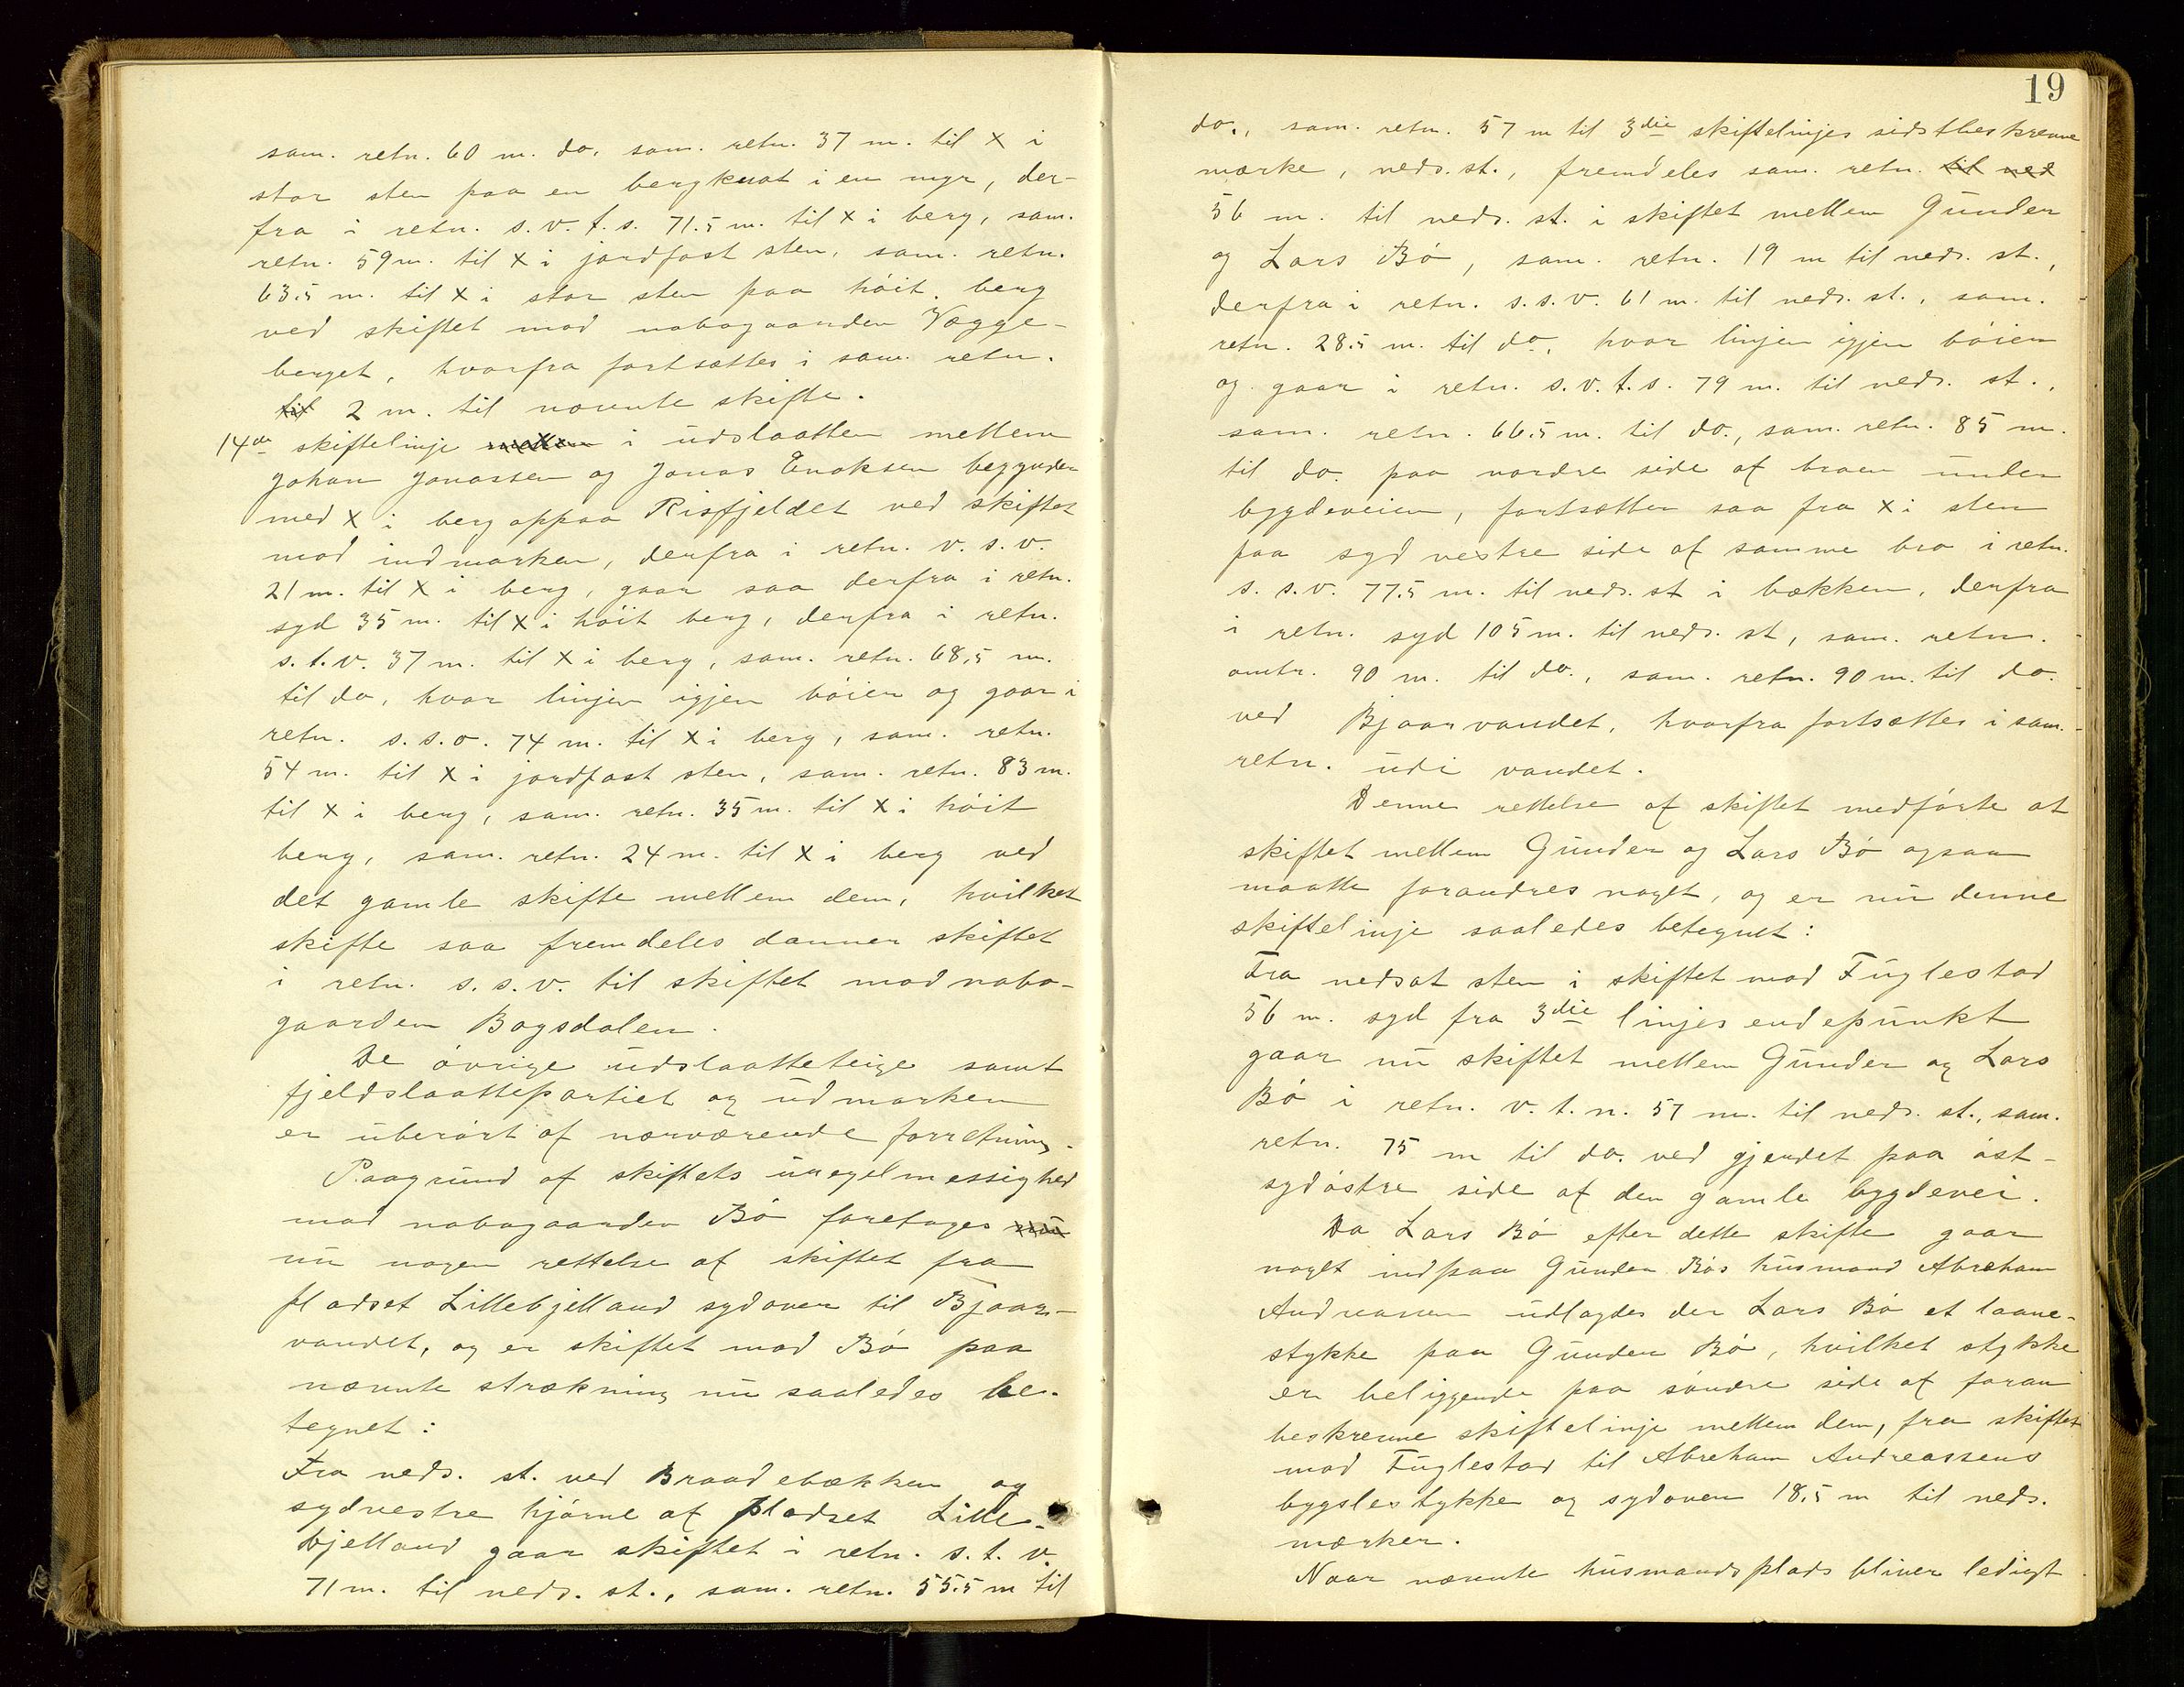 sam. retn. 60 m. do. sam. retn. 37 m. til x i
stor sten paa en bergknat i en myr, der-
fra i retn. s.v.t.s. 71.5 m. til x i berg, sam.
retn. 59 m. til x i jordfast sten, sam. retn.
63.5 m. til x i stor sten paa høit berg
ved skiftet mod nabogaarden Vægge-
berget, hvorfra fortsættes i sam. retn.
til 2 m. til nævnte skifte.
14de skiftelinje mellem i udslaatten mellem
Johan Jonassen og Jonas Enoksen begynder
med x i berg oppaa Risfjeldet ved skiftet
mod indmarken, derfra i retn. v.s.v.
21 m. til x i berg, gaar saa derfra i retn.
syd 35 m. til x i høit berg, derfra i retn.
s.t.v. 37 m. til x i berg, sam. retn. 68,5 m.
til do, hvor linjen igjen bøier og gaar i
retn. s.s.o. 74 m. til x i berg, sam. retn.
54 m. til x i jordfast sten, sam. retn. 83 m.
til x i berg, sam. retn. 35 m. til x i høit
berg, sam. retn. 24 m. til x i berg ved
det gamle skifte mellem dem, hvilket
skifte saa fremdeles danner skiftet
i retn. s.s.v. til skiftet mod nabo-
gaarden Bogsdalen.
De øvrige udslaatteteige samt
fjeldslaattepartiet og udmarken
er uberørt af nærværende forretning.
Paagrund af skiftets uregelmessighed
mod nabogaarden Bø foretages nu
nu nogen rettelse af skiftet fra
pladset Lillebjelland sydover til Bjaar-
vandet, og er skiftet mod Bø paa
nævnte strækning nu saaledes be-
tegnet:
Fra neds. st. ved Braadebækken og
sydvestre hjørne af pladset Lille-
bjelland gaar skiftet i retn. s.t.v.
71 m. til neds. st., sam. retn. 55.5 m til
19
do., sam. retn. 57 m til 3die skiftelinjes sidstbeskrevne
mærke, neds. st., fremdeles sam. retn. til ned
56 m. til neds. st. i skiftet mellem Gunder
og Lars Bø, sam. retn. 19 m til neds. st.,
derfra i retn. s.s.v. 61 m. til neds. st., sam.
retn. 28.5 m. til do, hvor linjen igjen bøier
og gaar i retn. s.v.t.s. 79 m. til neds. st.,
sam. retn. 66.5 m. til do., sam. retn. 85 m.
til do. paa nordre side af broen under
bygdeveien, fortsætter saa fra x i sten
paa syd vestre side af samme bro i retn.
s.s.v. 77.5 m. til neds. st i bækken, derfra
i retn. syd 105 m. til neds. st, sam. retn.
omtr. 90 m. til do., sam. retn. 90 m. til do.
ved Bjaarvandet, hvorfra fortsættes i sam.
retn. udi vandet.
Denne rettelse af skiftet medførte at
skiftet mellem Gunder og Lars Bø ogsaa
maatte forandres noget, og er nu denne
skiftelinje saaledes betegnet:
Fra nedsat sten i skiftet mod Fuglestad
56 m. syd fra 3die linjes endepunkt
gaar nu skiftet mellem Gunder og Lars
Bø i retn. v.t.n. 57 m. til neds. st., sam.
retn. 75 m til do. ved gjerdet paa øst-
sydøstre side af den gamle bygdevei.
Da Lars Bø efter dette skifte gaar
noget indpaa Gunder Bøs husmand Abreham
Andreassen udlagdes der Lars Bø et laane-
stykke paa Gunder Bø, hvilket stykke
er beliggende paa søndre side af foran
beskrevne skiftelinje mellem dem, fra skiftet
mod Fuglestad til Abreham Andreassens
bygslestykke og sydover 18,5 m til neds.
mærker.
Naar nævnte husmandsplads bliver ledigt